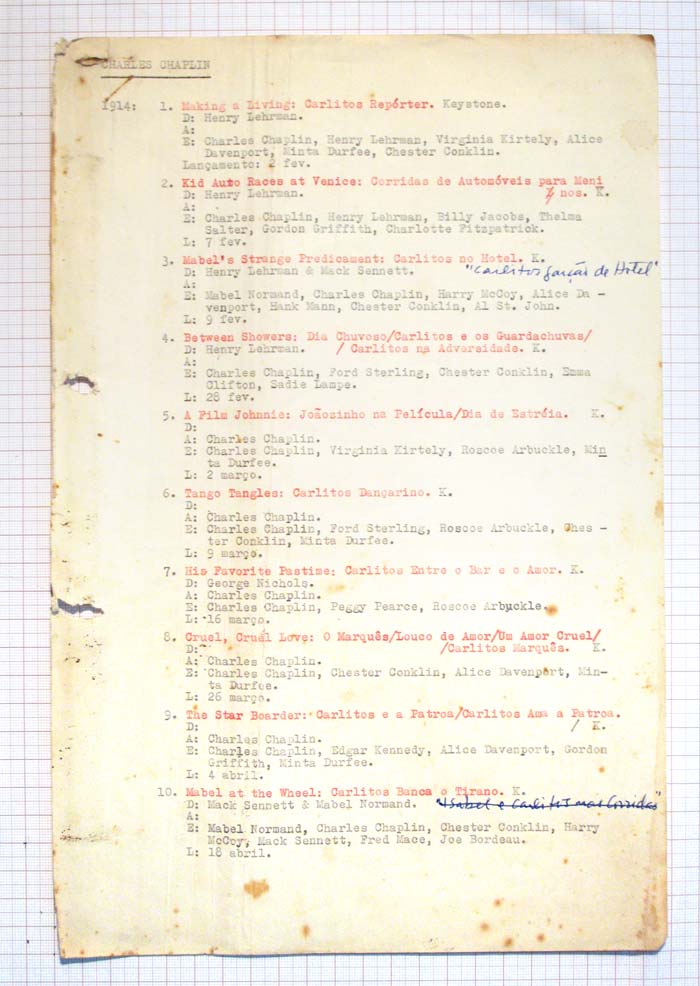 CHARLES CHAPLIN
1914: 1. Making a Living: Carlitos Repórter. Keystone.
D: Henry Lehrman.
A:
E: Charles Chaplin, Henry Lehrman, Virginia Kirtely, Alice
Davenport, Minta Durfee, Chester Conklin.
Lançamento: 2 fev.
2. Kid Auto Races at Venice: Corridas de Automóveis para Meni
D: Henry Lehrman. / nos. K.
A:
E: Charles Chaplin, Henry Lehrman, Billy Jacobs, Thelma
Salter, Gordon Griffith, Charlotte Fitzpatrick.
L: 7 fev.
3. Mabel's Strange Predicament: Carlitos no Hotel. K.
D: Henry Lehrman & Mack Sennett. "Carlitos garção de Hotel"
A:
E: Mabel Normand, Charles Chaplin, Harry McCoy, Alice Da -
venport, Hank Mann, Chester Conklin, Al St. John.
L: 9 fev.
4. Between Showers: Dia Chuvoso/Carlitos e os Guardachuvas/
D: Henry Lehrman. / Carlitos na Adversidade. K.
A:
E: Charles Chaplin, Ford Sterling, Chester Conklin, Emma
Clifton, Sadie Lampe.
L: 28 fev.
5. A Film Johnnie: Joãosinho na Película/Dia de Estréia. K.
D:
A: Charles Chaplin.
E: Charles Chaplin, Virginia Kirtely, Roscoe Arbuckle, Min
ta Durfee.
L: 2 março.
6. Tango Tangles: Carlitos Dançarino. K.
D:
A: Charles Chaplin.
E: Charles Chaplin, Ford Sterling, Roscoe Arbuckle, Ches -
ter Conklin, Minta Durfee.
L: 9 março.
7. His Favorite Pastime: Carlitos Entre o Bar e o Amor. K.
D: George Nichols.
A: Charles Chaplin.
E: Charles Chaplin, Peggy Pearce, Roscoe Arbuckle.
L: 16 março.
8. Cruel, Cruel Love: O Marquês/Louco de Amor/Um Amor Cruel/
D: /Carlitos Marquês. K.
A: Charles Chaplin.
E: Charles Chaplin, Chester Conklin, Alice Davenport, Min-
ta Durfee.
L: 26 março.
9. The Star Boarder: Carlitos e a Patroa/Carlitos Ama a Patroa.
D: / K.
A: Charles Chaplin.
E: Charles Chaplin, Edgar Kennedy, Alice Davenport, Gordon
Griffith, Minta Durfee.
L: 4 abril.
10. Mabel at the Wheel: Carlitos Banca o Tirano. K.
D: Mack Sennett & Mabel Normand. "Isabel e Carlitos nas Corridas"
A:
E: Mabel Normand, Charles Chaplin, Chester Conklin, Harry
McCoy, Mack Sennett, Fred Mace, Joe Bordeau.
L: 18 abril.